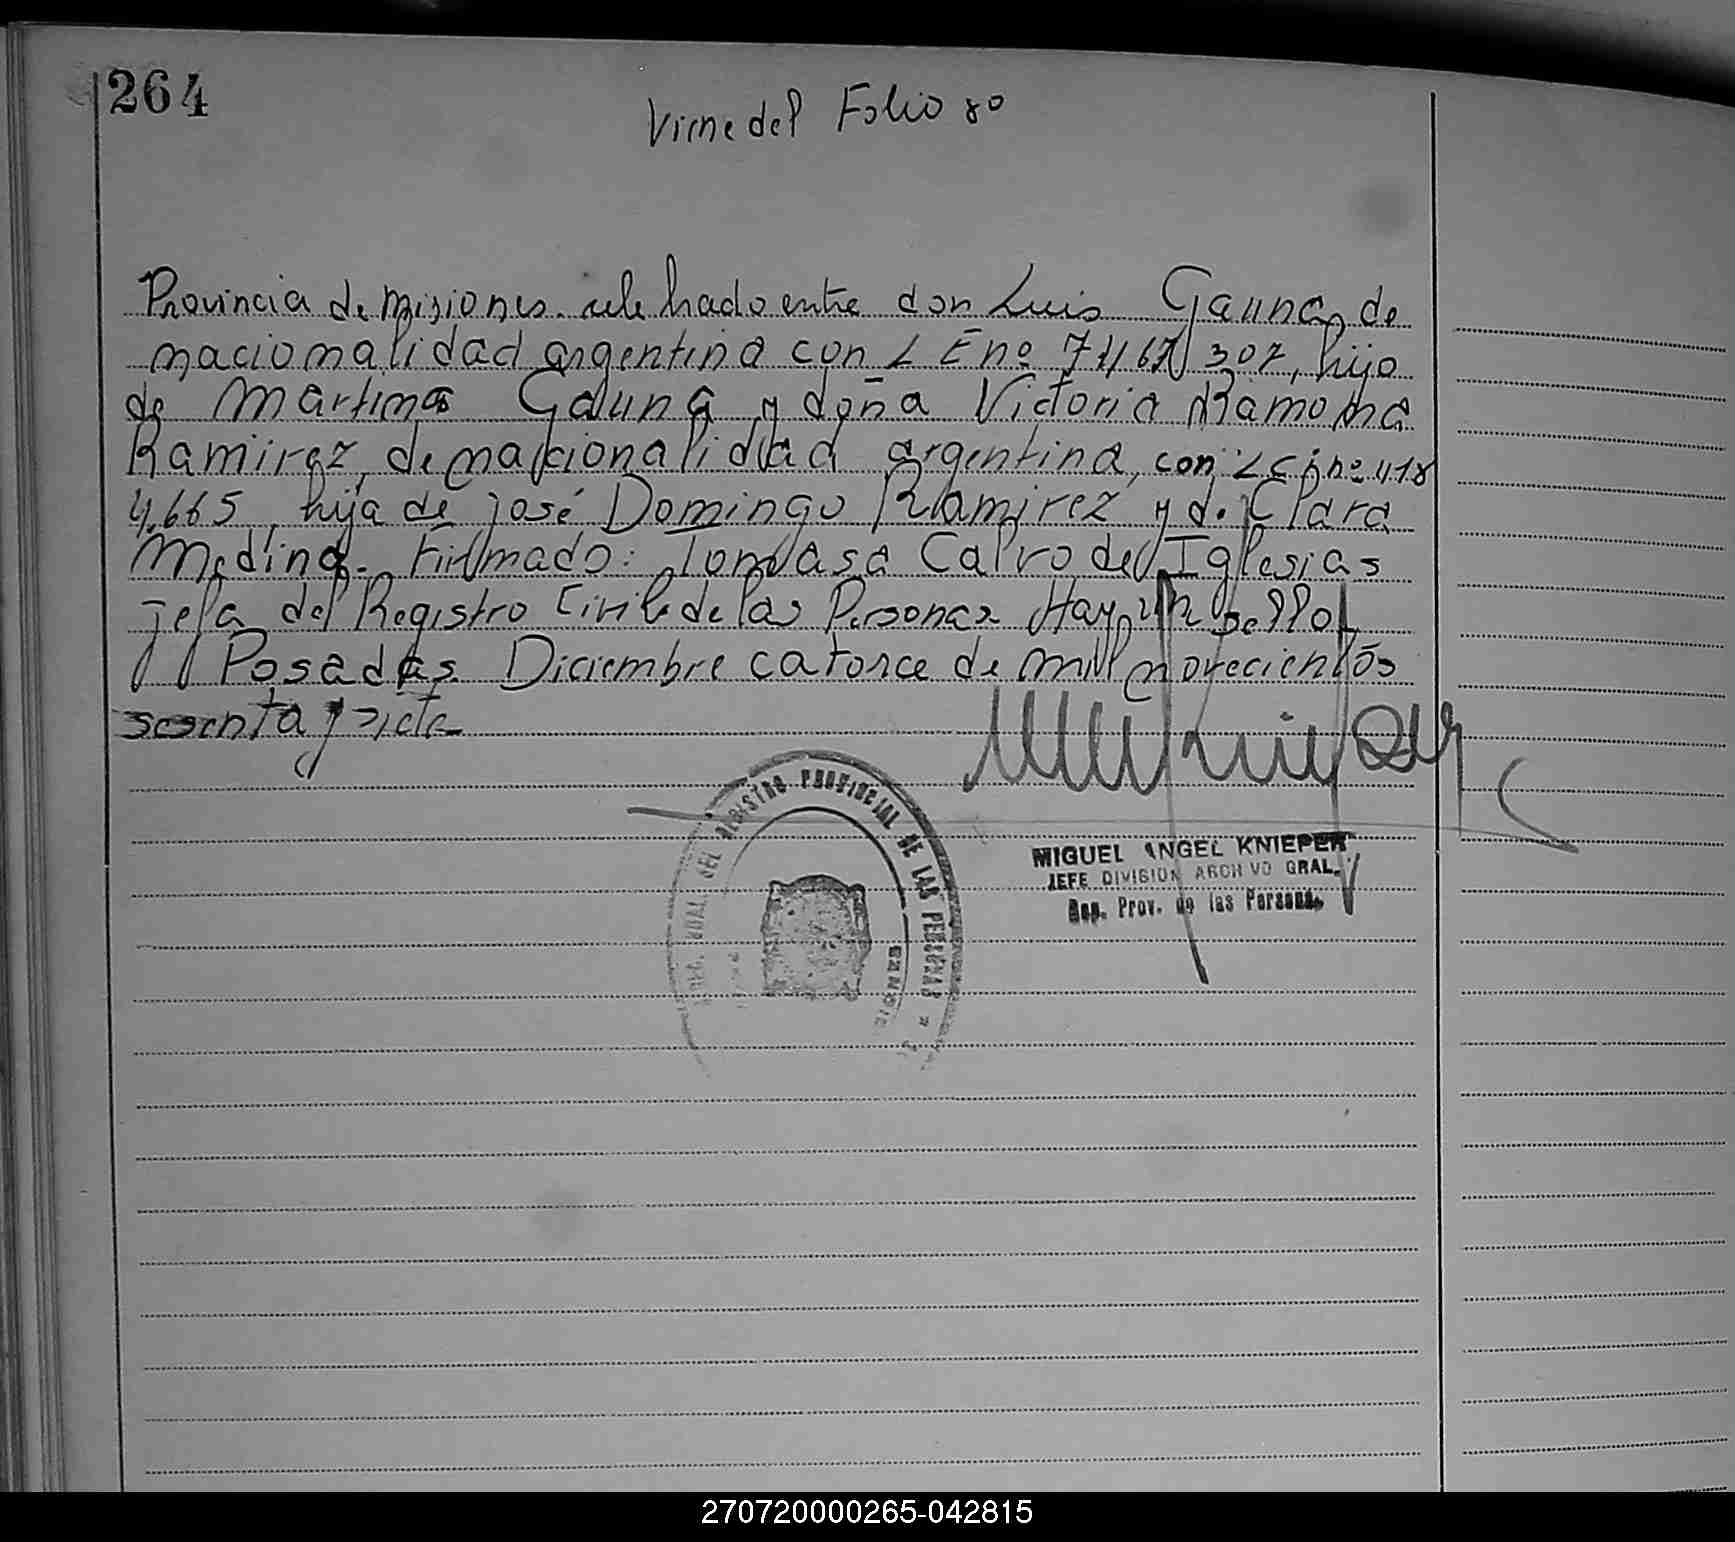 264
Viene del Folio 80
Provincia de Misiones. celebrado entre don Luis Gauna, de
nacionalidad argentina con L E nº 307, hijo
de Martina Gauna y doña Victoria Ramona
Ramirez, de nacionalidad argentina, con L C nº 418
4.665, hija de José Domingo Ramirez y d. Clara
Medina. Firmado: Tomasa Calvo de Iglesias
jefa del Registro Civil de las Personas Hay un sello
Posadas Diciembre catorce de mil novecientos
sesenta y siete
REGISTRO PROVINCIAL DE LAS PERSONAS
MIGUEL ANGEL KNIEPER
JEFE DIVISION ARCHIVO GRAL.
Rep. Prov. de las Personas
270720000265-042815